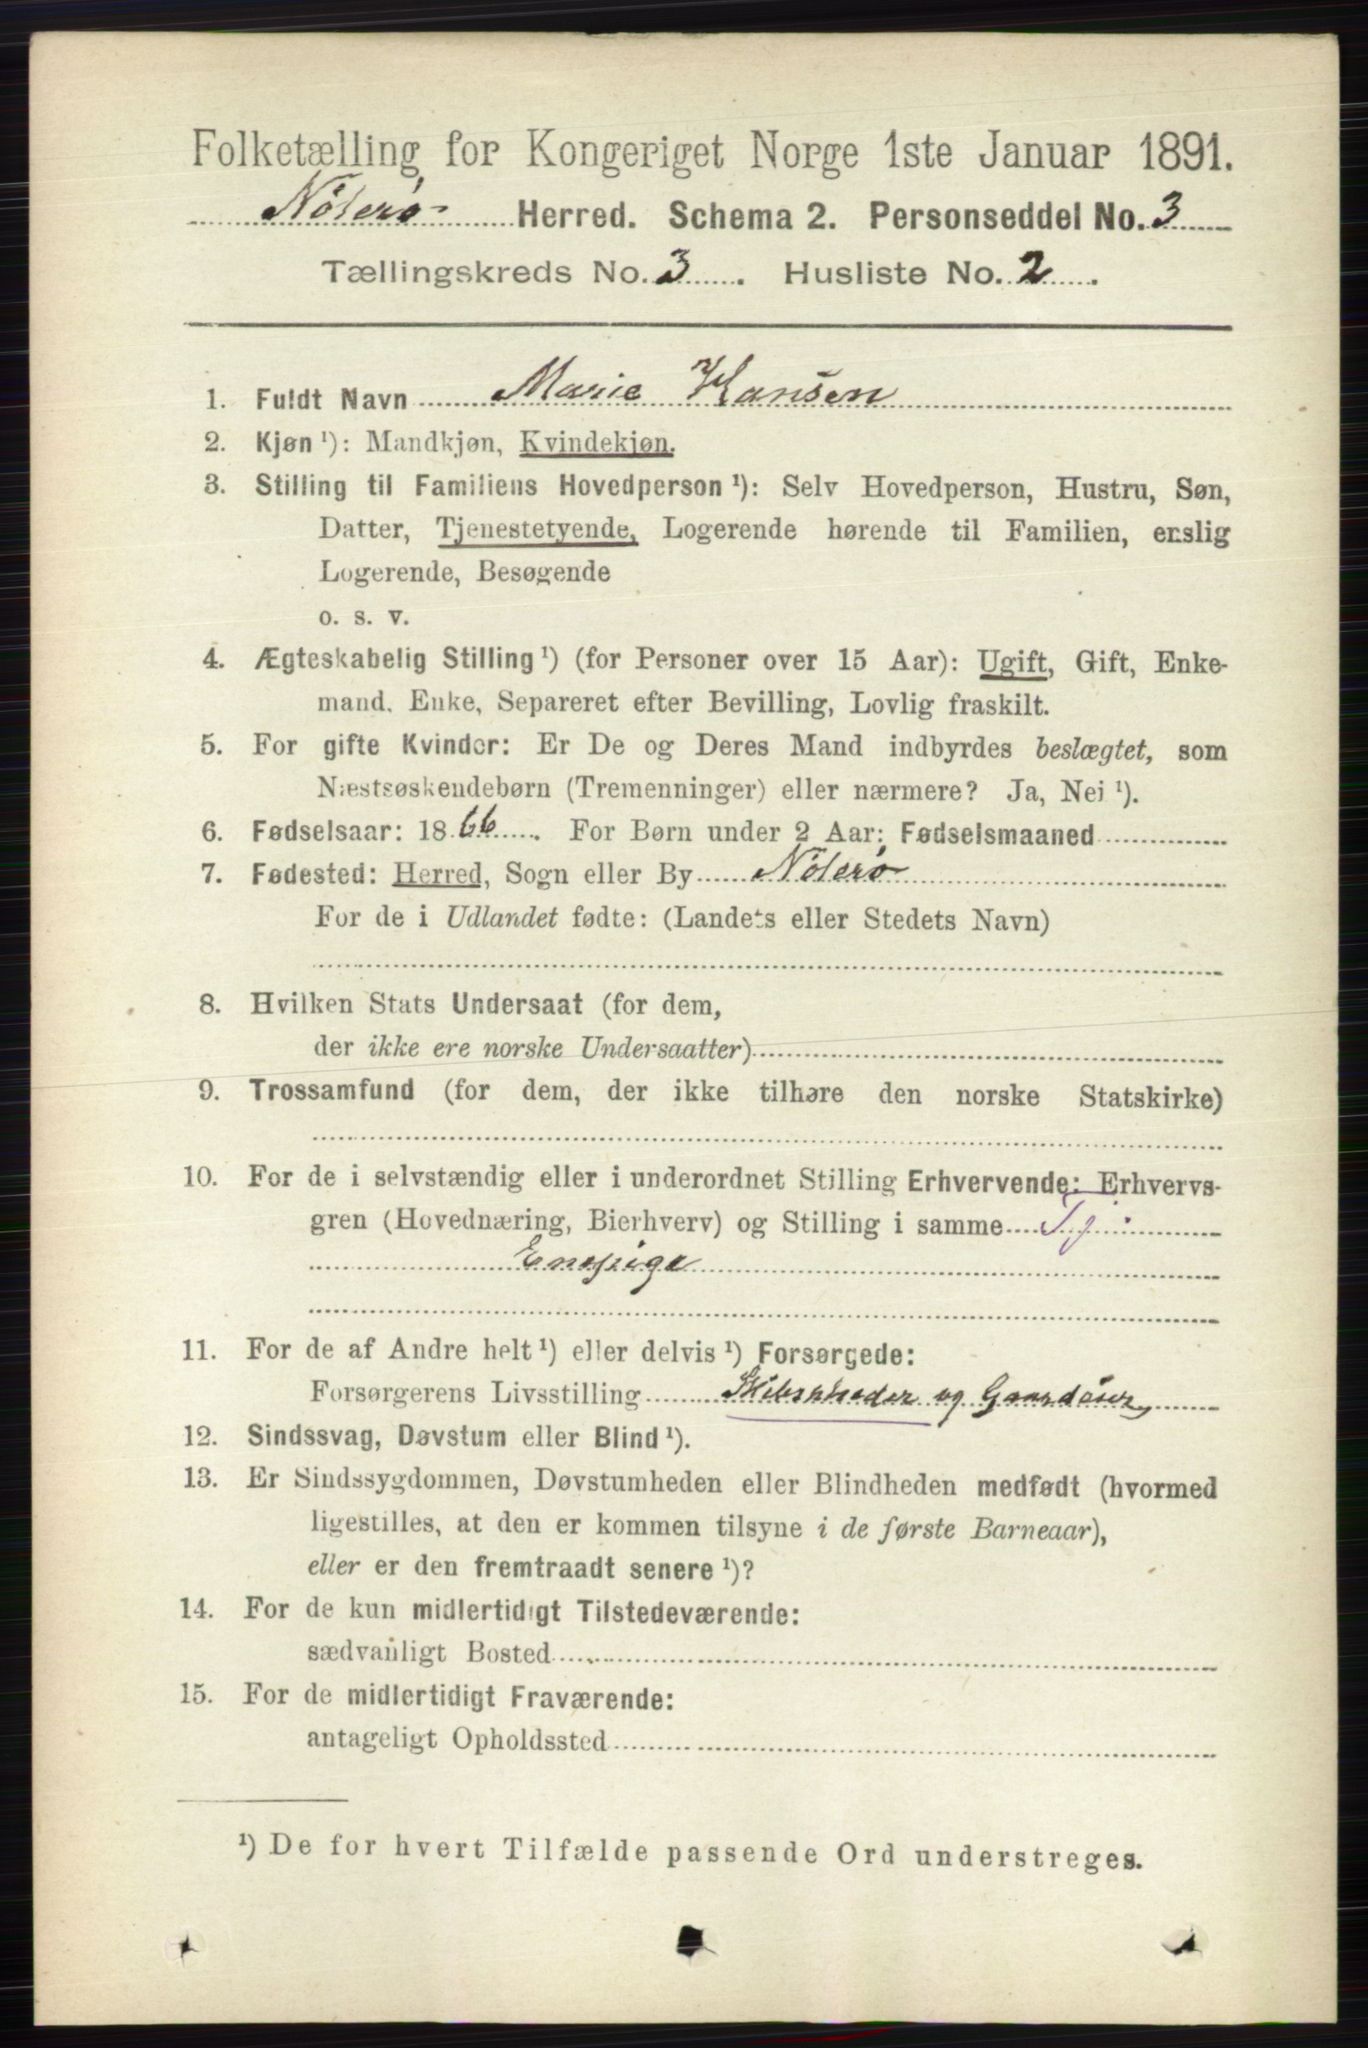 Folketælling for Kongeriget Norge 1ste Januar 1891.
Nøterø Herred. Schema 2. Personseddel No. 3
Tællingskreds No. 3. Husliste No. 2.
1. Fuldt Navn Marie Hansen
2. Kjøn ¹): Mandkjøn, Kvindekjøn.
3. Stilling til Familiens Hovedperson ¹): Selv Hovedperson, Hustru, Søn,
Datter, Tjenestetyende, Logerende hørende til Familien, enslig
Logerende, Besøgende
o. s. v.
4. Ægteskabelig Stilling ¹) (for Personer over 15 Aar): Ugift, Gift, Enke-
mand, Enke, Separeret efter Bevilling, Lovlig fraskilt.
5. For gifte Kvinder: Er De og Deres Mand indbyrdes beslægtet, som
Næstsøskendebørn (Tremenninger) eller nærmere? Ja, Nei ¹).
6. Fødselsaar: 1866. For Børn under 2 Aar: Fødselsmaaned
7. Fødested: Herred, Sogn eller By Nøterø
For de i Udlandet fødte: (Landets eller Stedets Navn)
8. Hvilken Stats Undersaat (for dem,
der ikke ere norske Undersaatter)
9. Trossamfund (for dem, der ikke tilhøre den norske Statskirke)
10. For de i selvstændig eller i underordnet Stilling Erhvervende: Erhvervs-
gren (Hovednæring, Bierhverv) og Stilling i samme Tj.
Enepige
11. For de af Andre helt ¹) eller delvis ¹) Forsørgede:
Forsørgerens Livsstilling Skibsrheder og Gaardeier,
12. Sindssvag, Døvstum eller Blind ¹).
13. Er Sindssygdommen, Døvstumheden eller Blindheden medfødt (hvormed
ligestilles, at den er kommen tilsyne i de første Barneaar),
eller er den fremtraadt senere ¹)?
14. For de kun midlertidigt Tilstedeværende:
sædvanligt Bosted
15. For de midlertidigt Fraværende:
antageligt Opholdssted
¹) De for hvert Tilfælde passende Ord understreges.